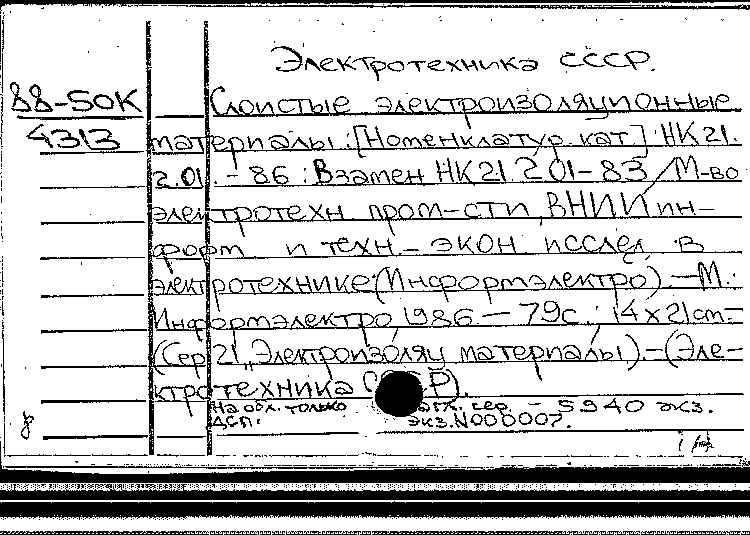 Электротехника СССР.
88-50К Слоистые электроизоляционные
4313 материалы : [Номенклатур. кат.] : НК 21.
2.01. - 86 : Взамен НК 21 2 01-83 / М-во
электротехн. пром-сти, ВНИИ ин-
форм и техн - экон исслед. в
электротехнике (Информэлектро). - М. :
Информэлектро, 1986. - 79с. ; 14 x 21 см -
(Сер 21, Электроизоляц материалы) - (Эле-
ктротехника
На обл. только сер. - 5940 экз.
ДСП. экз. N000007.